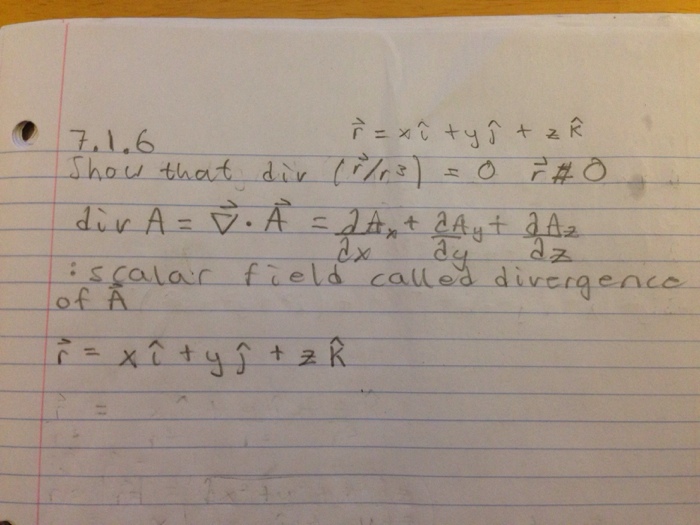 7.1.6 r⃗ = xî + yĵ + zk̂
Show that div (r⃗/r³) = 0 r⃗ ≠ 0⃗
div A = ∇⃗ · A⃗ = ∂Aₓ/∂x + ∂Ay/∂y + ∂Az/∂z
: scalar field called divergence
of A⃗
r⃗ = xî + yĵ + zk̂